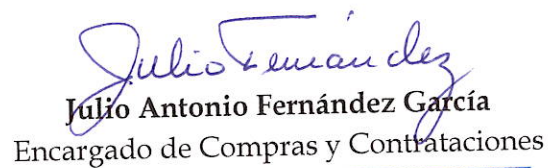 Julio Fernández
Julio Antonio Fernández García
Encargado de Compras y Contrataciones